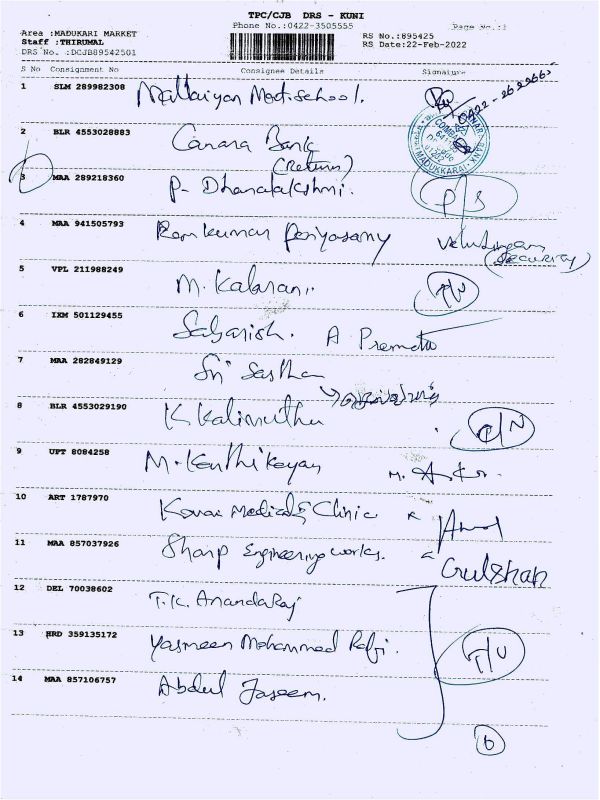 TPC/CJB DRS - KUNI
Phone No.:0422-3505555 Page No.:1
Area :MADUKARI MARKET
Staff : THIRUMAL
DRS No. :DCJB89542501
RS No.:895425
RS Date:22-Feb-2022
S No Consignment No Consignee Details Signature
1 SLM 289982308 Mallaiyan Mat.school. 0422-2622665
2 BLR 4553028883 Canara Bank
(Return)
3 MAA 289218360 P- Dhanalakshmi. P/S
4 MAA 941505793 Ramkumar Periyasamy
(SECURITY)
5 VPL 211988249 M. Kalarani. T/U
6 IXM 501129455 Sabarish. A Premata
7 MAA 282849129 Sri Sastha
8 BLR 4553029190 K Kalimuthu C/N
9 UPT 8084258 M. Karthikeyan M.
10 ART 1787970 Kovai Medicals Clinic
11 MAA 857037926 Sharp Engineering works. Gulshan
12 DEL 70038602 T.K. Anandaraj
13 HRD 359135172 Yasmeen Mohammed Rafi. T/U
14 MAA 857106757 Abdul Jaseem.
6